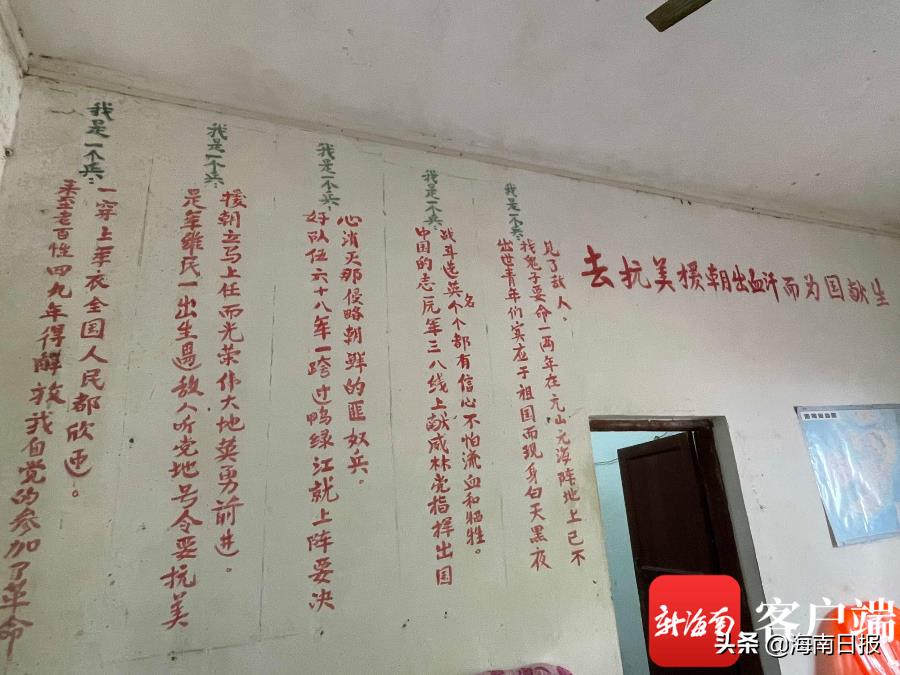 我是一个兵:
来至老百性四九年得解放我自党的参加了革命
一穿上军衣全国人民都欣迊。
我是一个兵:
是军维民一出生遇敌人听党地号令要抗美
援朝立马上任而光荣伟大地英勇前进。
我是一个兵:
好队伍六十八军一跨过鸭绿江就上阵要决
心消灭那侵略朝鲜的匪奴兵。
我是一个兵:
中国的志愿军三八线上献威林党指挥出国
战斗选英名个个都有信心不怕流血和牺牲。
我是一个兵:
出世青年们实应于祖国而现身白天黑夜
找鬼子要命一两年在元山元海阵地上已不
见了敌人.
去抗美援朝出血汗而为国献生
新海南 客户端
头条 @海南日报